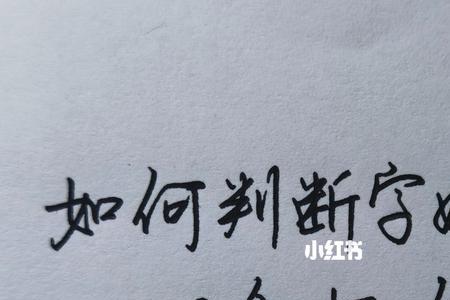 如何判断字
小红书